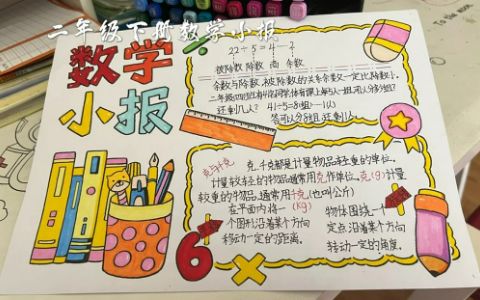 二年级下册数学小报
数学
小报
22÷5=4……2
被除数 除数 商 余数
余数与除数、被除数的关系余数一定比除数小。
还剩几人? 41÷5=8(组)……1(人)
克与千克
克、千克都是计量物品轻重的单位。
计量较轻的物品通常用克作单位。克(g)计量
较重的物品,通常用千克(也叫公斤)
(kg)
在平面内将一
个图形沿着某个方向
移动一定的距离。
物体围绕一个
定点沿着某个方向
转动一定的角度。
6